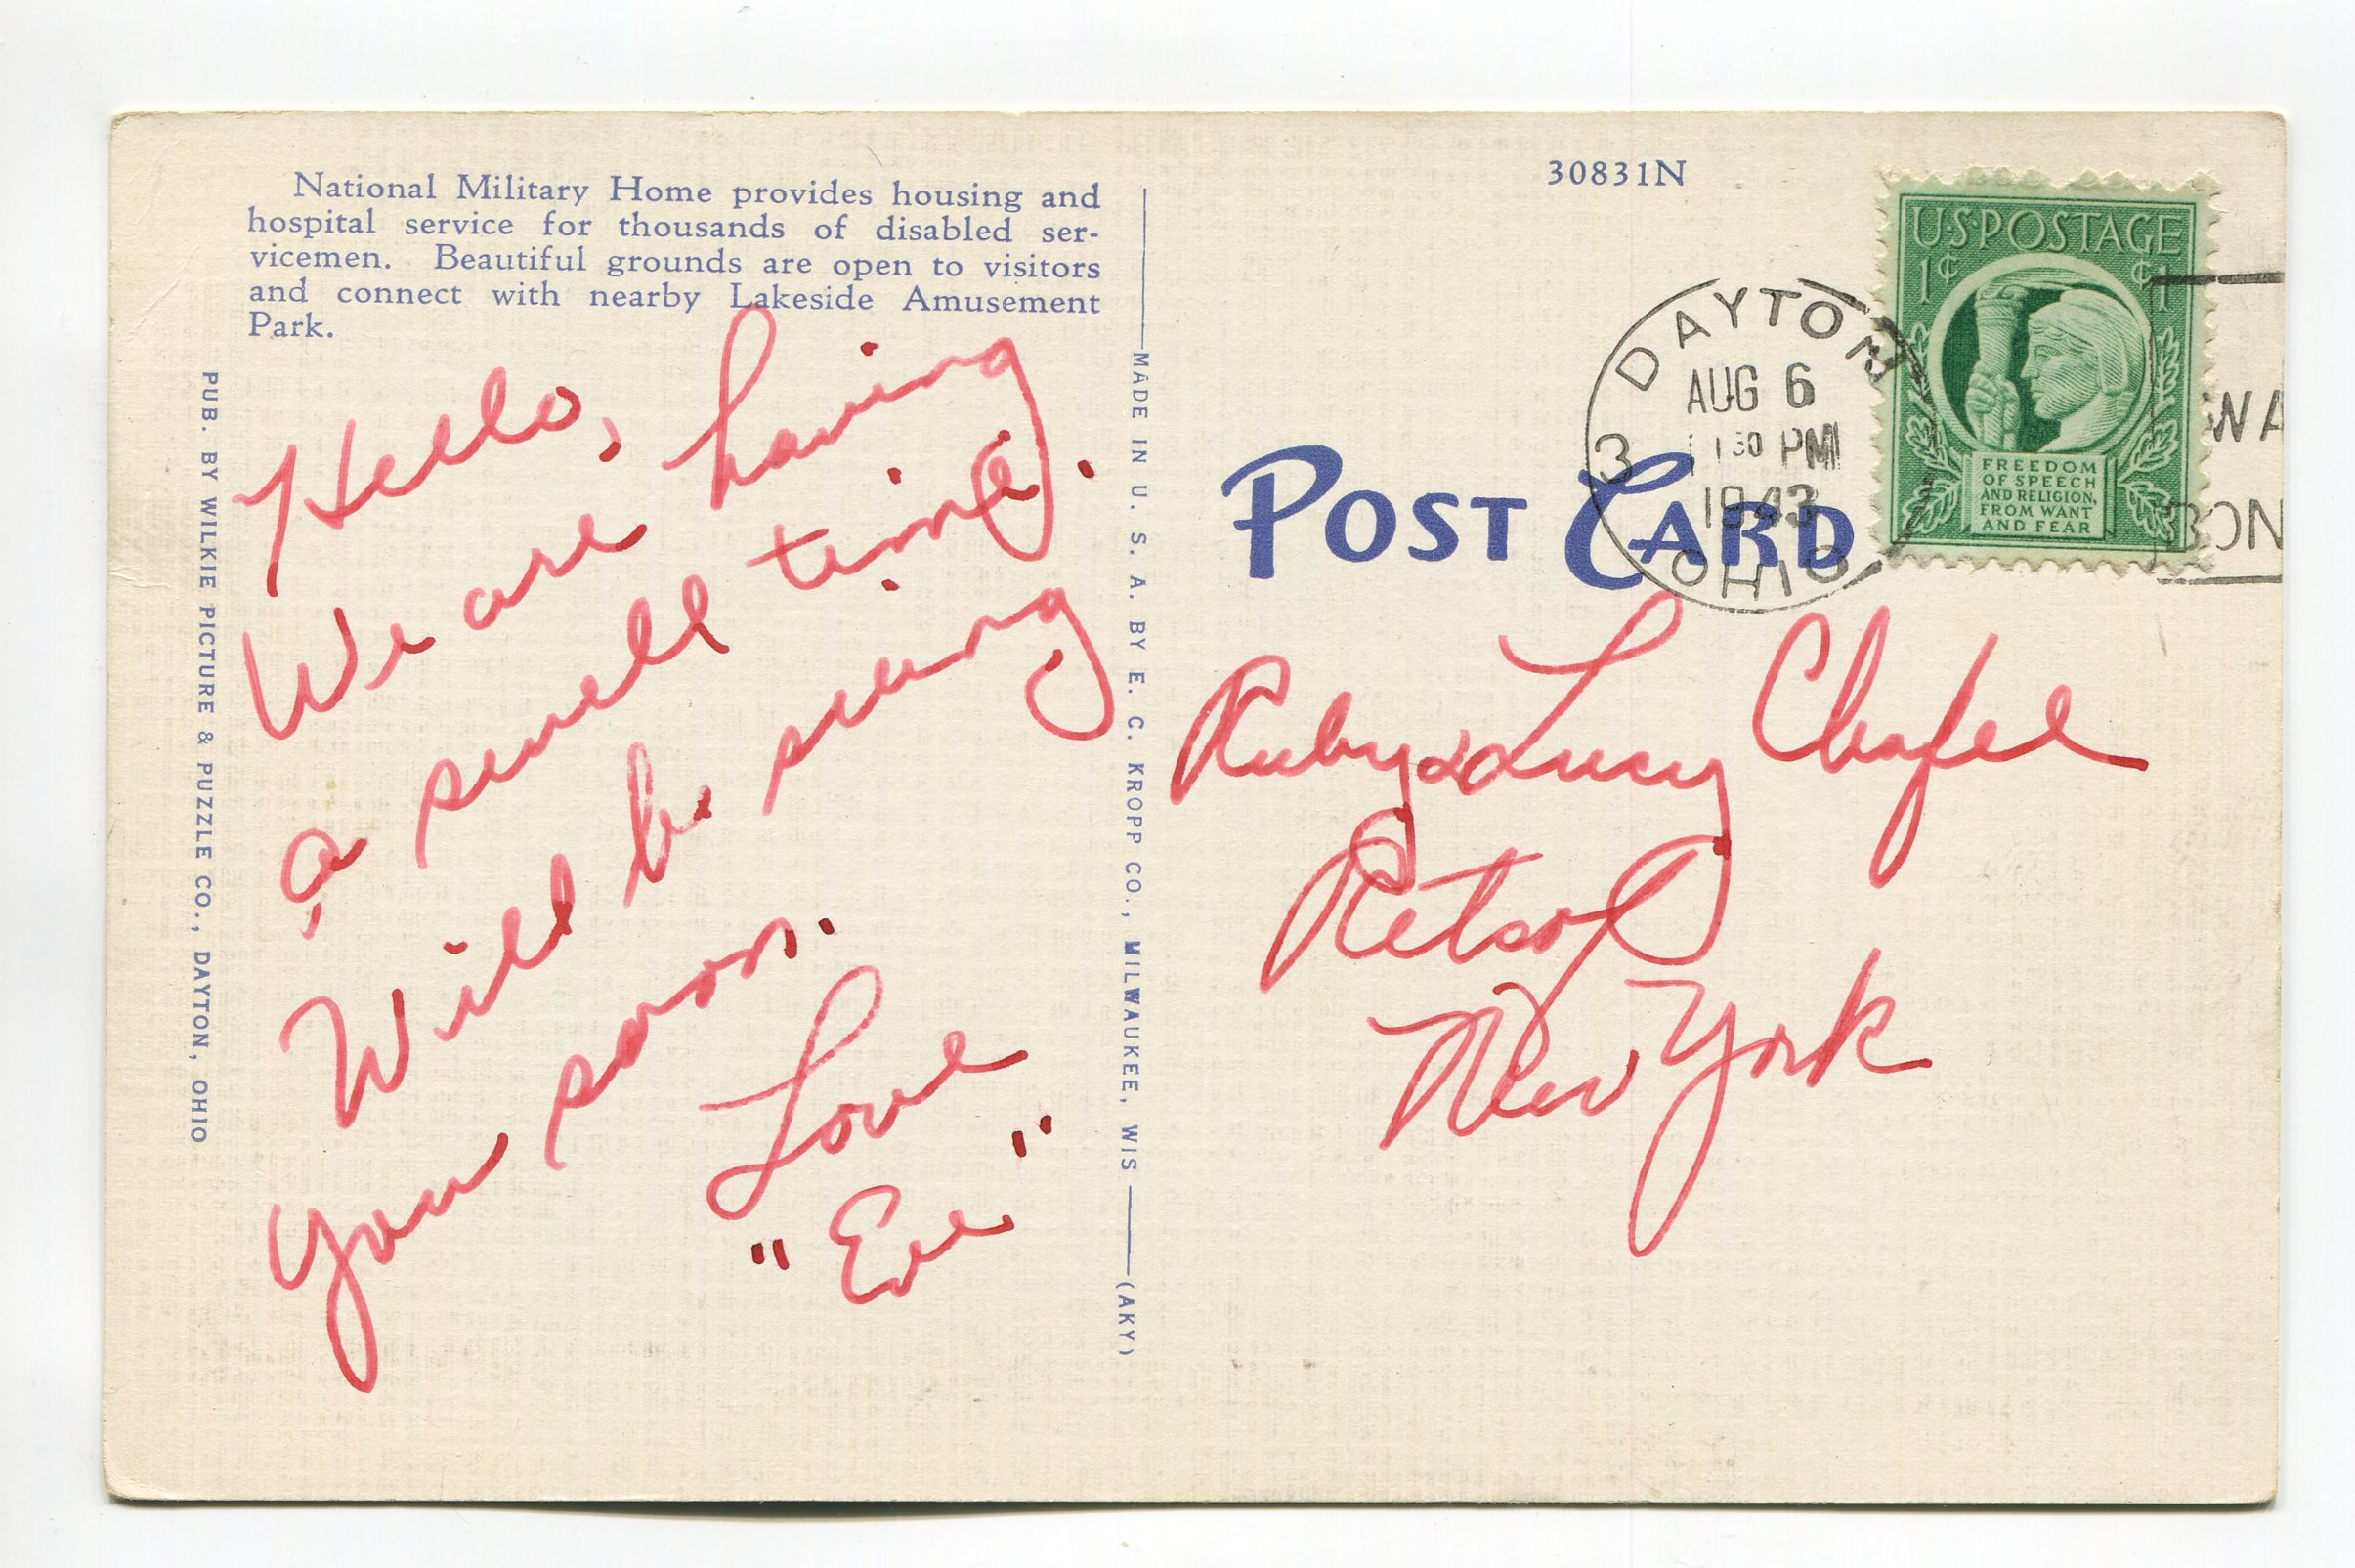 National Military Home provides housing and
hospital service for thousands of disabled ser-
vicemen. Beautiful grounds are open to visitors
and connect with nearby Lakeside Amusement
Park.
PUB. BY WILKIE PICTURE & PUZZLE CO., DAYTON, OHIO
Hello,
We are having
a swell time.
Will be seeing
you soon.
Love
"Eve"
MADE IN U. S. A. BY E. C. KROPP CO., MILWAUKEE, WIS
(AKY)
30831N
POST CARD
DAYTON
3
AUG 6
PM
1943
OHIO
U·S POSTAGE
1¢ ¢1
FREEDOM
OF SPEECH
AND RELIGION,
FROM WANT
AND FEAR
WA
BON
Ruby & Lucy Chapel
Retsof
New York